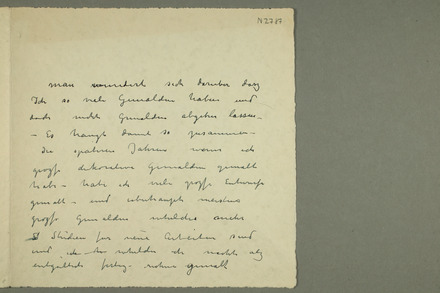 N2787
man wundert sich darüber dass
Ich so viele Gemälden habe und
doch nicht Gemälden abgeben lassen
– Es hängt damit so zusammen –
die späteren Jahren wenn ich
grosse dekorative Gemälden gemalt
habe – habe ich viele grosse Entwürfe
gemalt – und überhaupt meistens
grosse Gemälden welche
Studien für meine Arbeiten sind
und ich welche nicht als
entgültig fertig gemalt